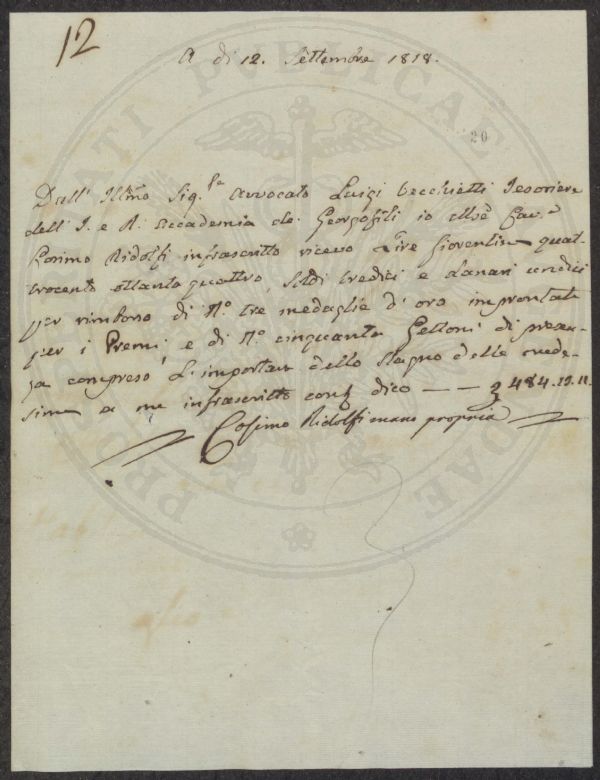 12
A di 12. Settembre 1818.
20
Dall' Illmo Sig.re Avvocato Luigi Vecchietti Tesoriere
dell' I. e R. Accademia de' Georgofili io Cav.e
Cosimo Ridolfi infrascritto ricevo Lire Fiorentine quat-
trocento ottantaquattro, soldi tredici e danari undici
per rimborso di N.o tre medaglie d'oro improntate
per i Premj, e di N.o cinquanta Gettoni di presen-
za compreso L'importare dello Stagno delle mede-
sime a me infrascritto dico — — 484.13.11.
Cosimo Ridolfi mano propria
PROSPERITATI PUBLICAE AUGENDAE